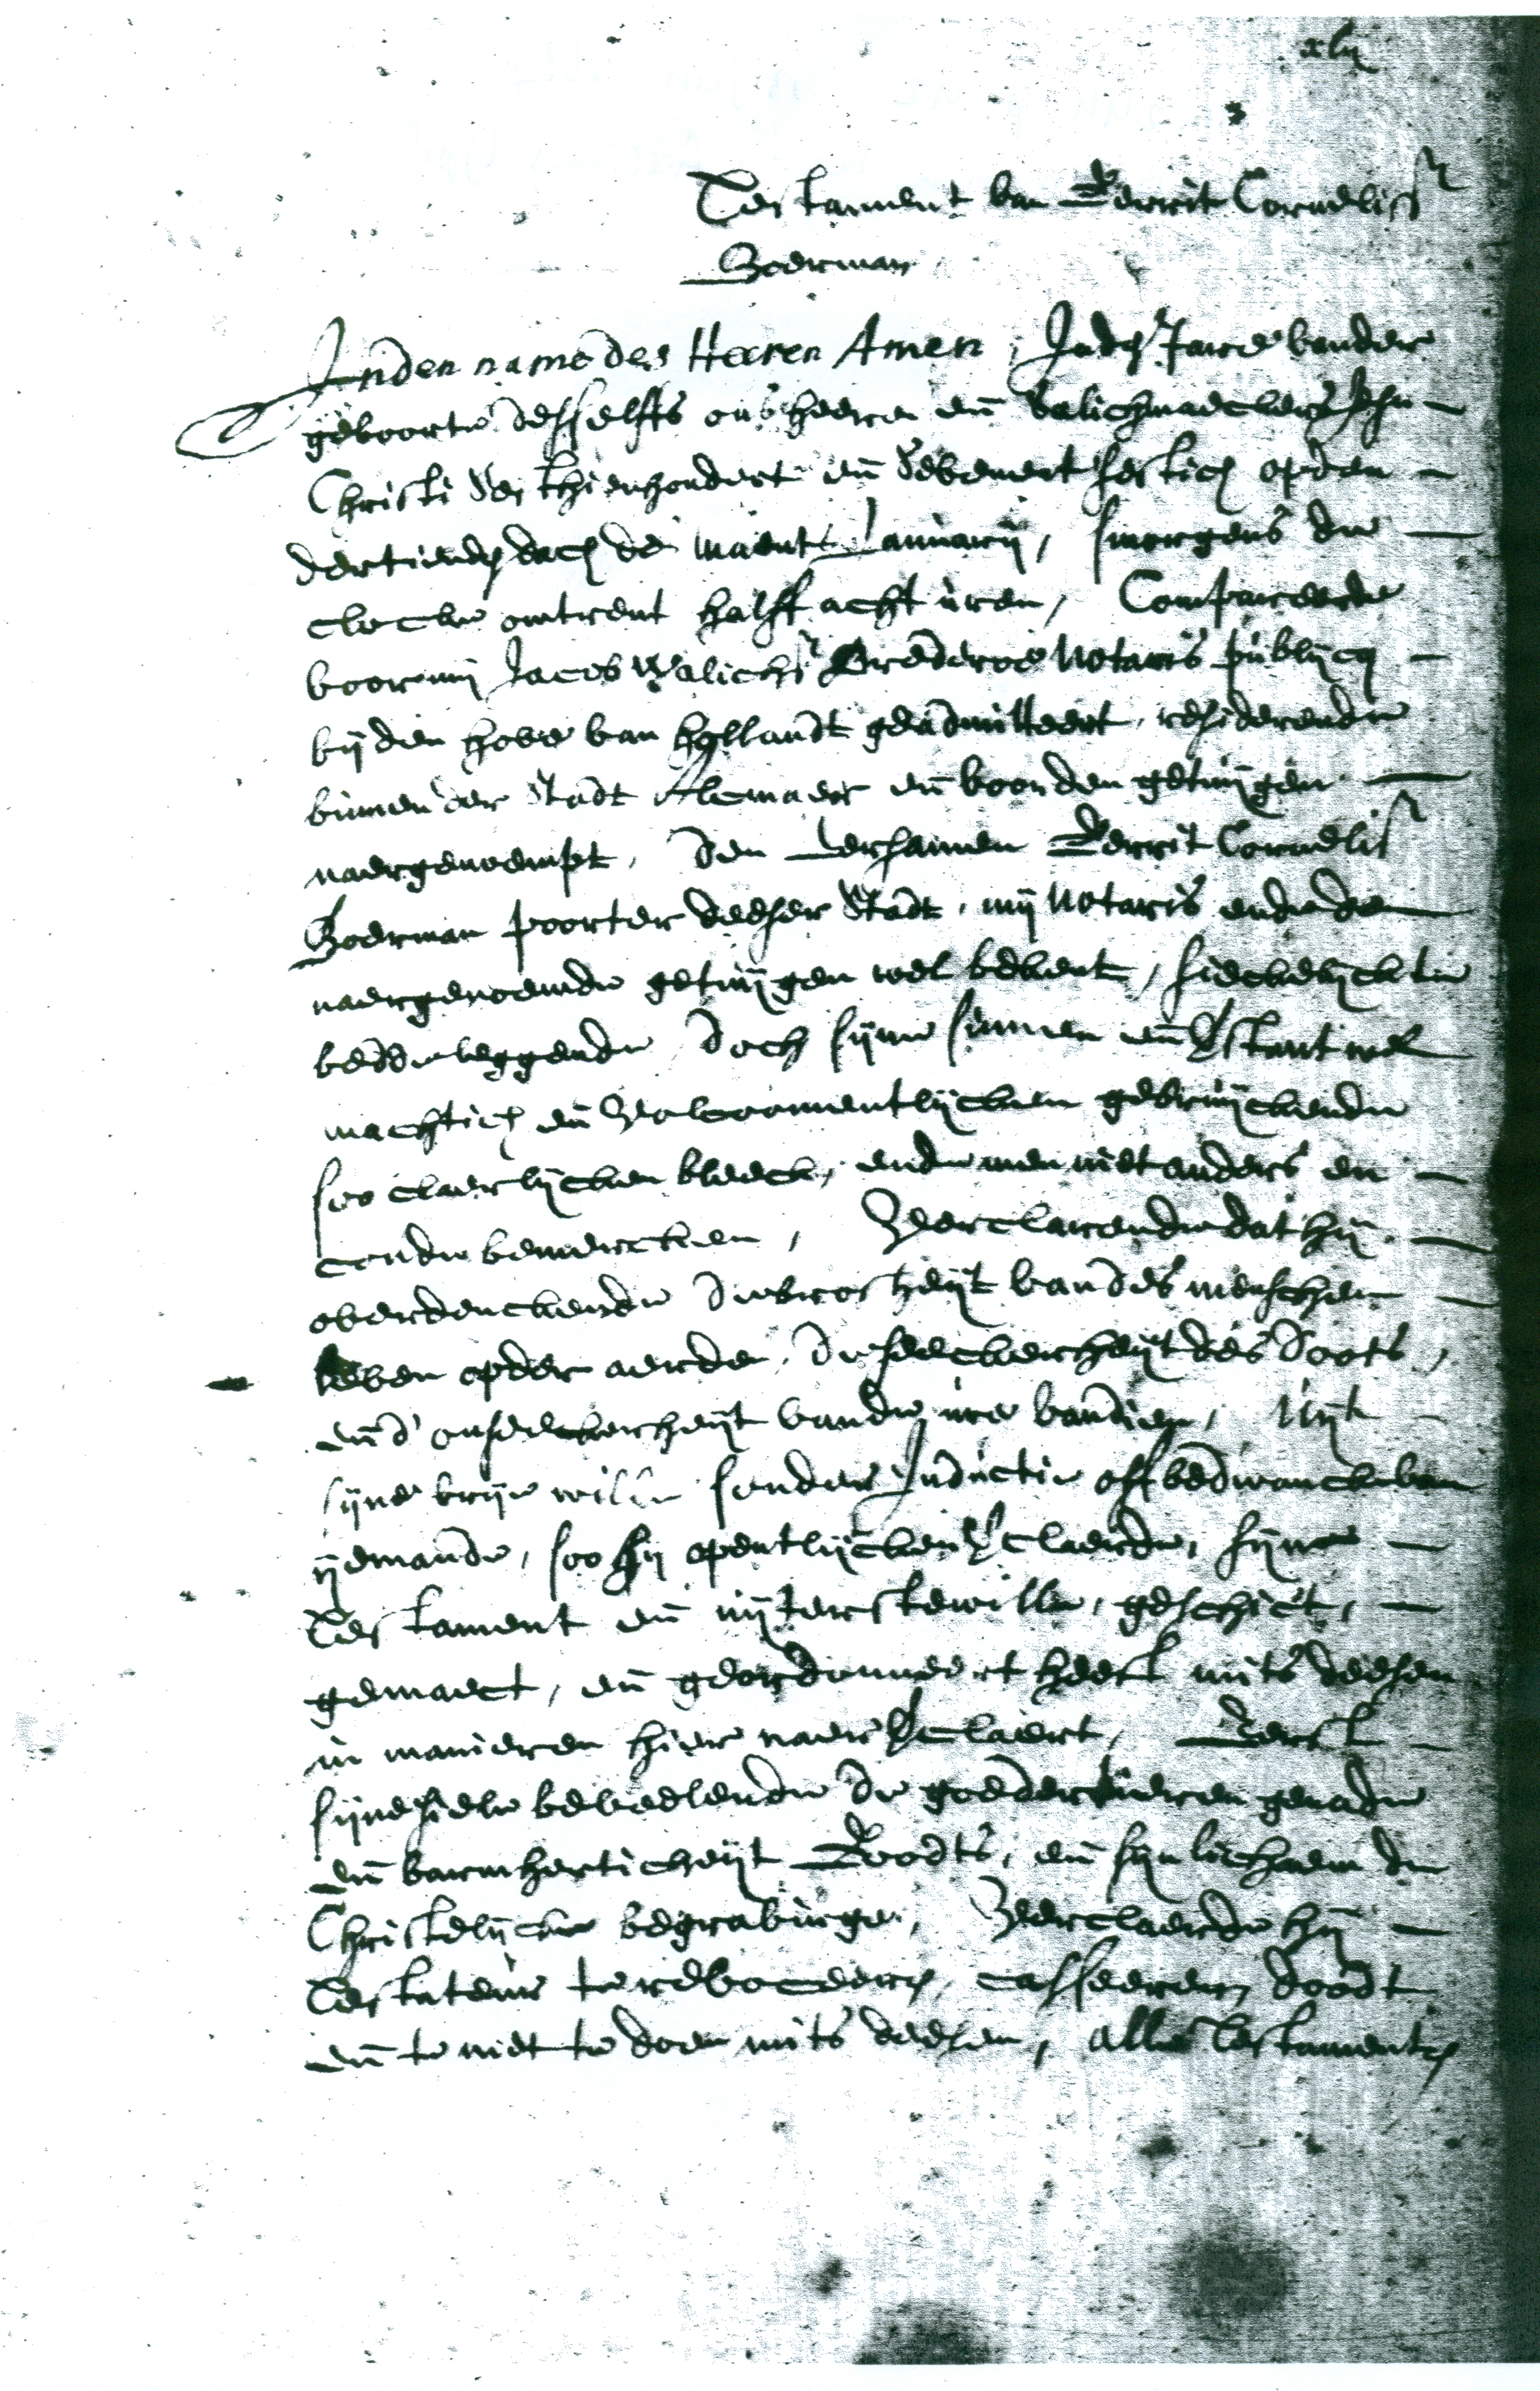 xlij
Testament van Gerrit Corneliss
Boerman
Inden name des Heeren Amen, Inden Jare vander
geboorte desselffs ons heeren en̄ Salichmaeckers Jesu
Christi Sesthienhondert en̄ Sevenentsestich opden
dertienden dach der maent Januarij, smorgens de
clocke omtrent halff acht uren, Compareerde
voor mij Jacob Walichs Brederoe Notaris publijcq
bij den hove van hollandt geadmitteert, residerende
binnen der Stadt Alcmaer en̄ voor den getuijgen
naergenoempt, Den Eersamen Gerrit Corneliss
Boerman poorter deeser Stadt, mij Notaris ende den
naergenoemde getuijgen wel bekent, sieckelijck te
bedde leggende Doch sijne sinnen en̄ v̄stant wel
machtich en̄ Volcoomentlijcken gebruijckende
soo claerlijcken bleeck, ende men niet anders en
conde bemercken, Verclarende dat hij
overdenckende de broosheijt van des menschen
leven opder aerde, De seeckerheijt des doots,
en̄ d' onseeckerheijt vande ure vandien, Uijt
sijne vrije wille sonder Inductie off bedwanck van
ijemande, soo hij opentlijcken v̄claerde, sijne
Testament en̄ uijterste wille, geschict,
gemaect, en̄ geordonneert heeft mits deesen
in manieren hier naer v̄claert, Eerst
sijne siele bevelende de goedertieren genade
en̄ barmherticheijt Goodts, en̄ sijn lichaem de
Christelijcke begravinge, Verclaerde hij
Testateur te revoceeren, casseeren, doodt
en̄ te niet te doen mits deesen, alle Testamenten